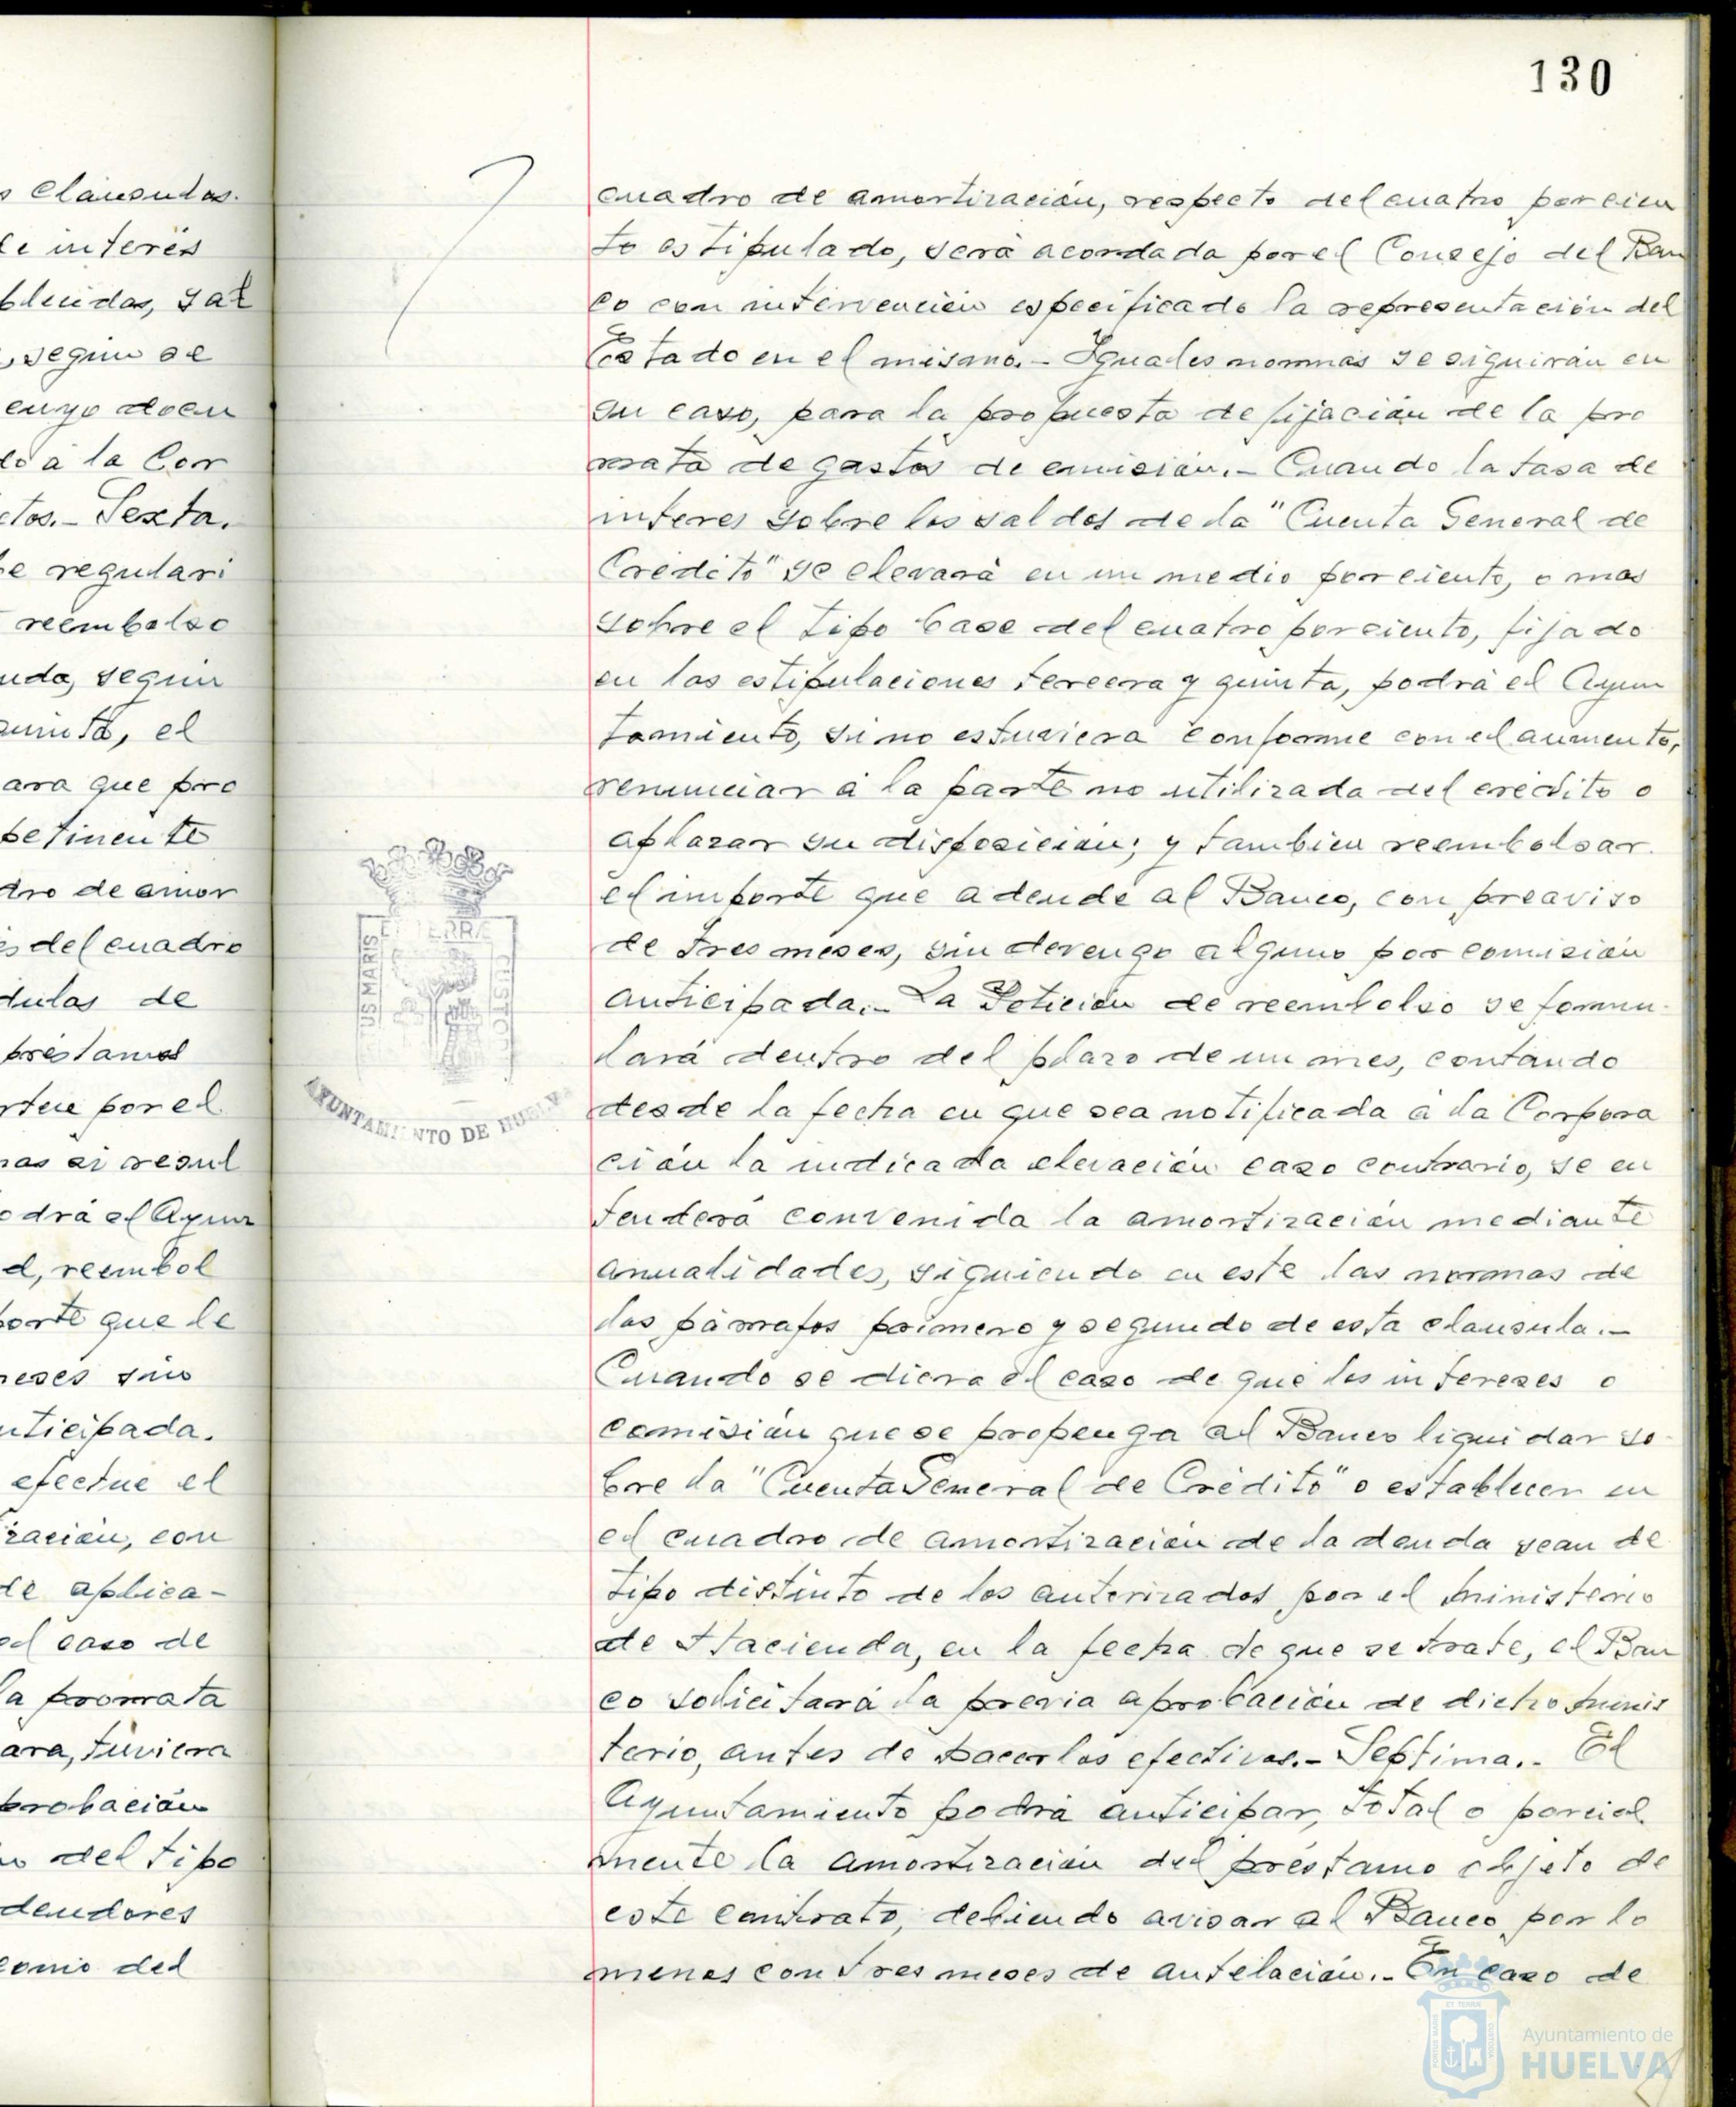 130
s Cláusulas.
de interés
blecidas, sal
, según se
cuyo docu
do á la Cor
ctos.- Sexta.
se regulari
reembolso
uda, según
quinta, el
ara que pro
petinente
dro de amor
és del cuadro
dulas de
préstamos
rtue por el
nas si resul
odrá el Ayun
d, reembol
porte que le
meses sin
nticipada.
efectue el
zación, con
de aplica-
el caso de
la prorrata
ara, tuviera
probación
o del tipo
deudores
como del
cuadro de amortización, respecto del cuatro por cien
to estipulado, será acordada por el Consejo del Ban
co con intervención especificada la representación del
Estado en el mismo.- Iguales normas se siguirán en
su caso, para la propuesta de fijación de la pro
rrata de gastos de emisión.- Cuando la tasa de
interes sobre los saldos de la "Cuenta General de
Crédito" se elevará en un medio por ciento, o mas
sobre el tipo base del cuatro por ciento, fijado
en las estipulaciones tercera y quinta, podrá el Ayun
tamiento, si no estuviera conforme con el aumento,
renunciar á la parte no utilizada del crédito o
aplazar su disposición; y tambien reembolsar
el importe que adeude al Banco, con preaviso
de tres meses, sin devengo alguno por comisión
anticipada.- La Petición de reembolso se formu
lará dentro del plazo de un mes, contando
desde la fecha en que sea notificada á la Corpora
ción la indicada elevación caso contrario, se en
tenderá convenida la amortización mediante
anualidades, siguiendo en este las normas de
los párrafos primero y segundo de esta clausula.-
Cuando se diera el caso de que los intereses o
comisión que se propenga al Banco liquidar so
bre la "Cuenta General de Crédito" o establecer en
el cuadro de amortización de la deuda sean de
tipo distinto de los autorizados por el Ministerio
de Hacienda, en la fecha de que se trate, el Ban
co solicitará la previa aprobación de dicho Minis
terio, antes de hacerlos efectivos.- Septima.- El
Ayuntamiento podrá anticipar, total o parcial
mente la amortización del préstamo objeto de
este contrato, debiendo avisar al Banco, por lo
menos con tres meses de antelación.- En caso de
AYUNTAMIENTO DE HUELVA
Ayuntamiento de
HUELVA